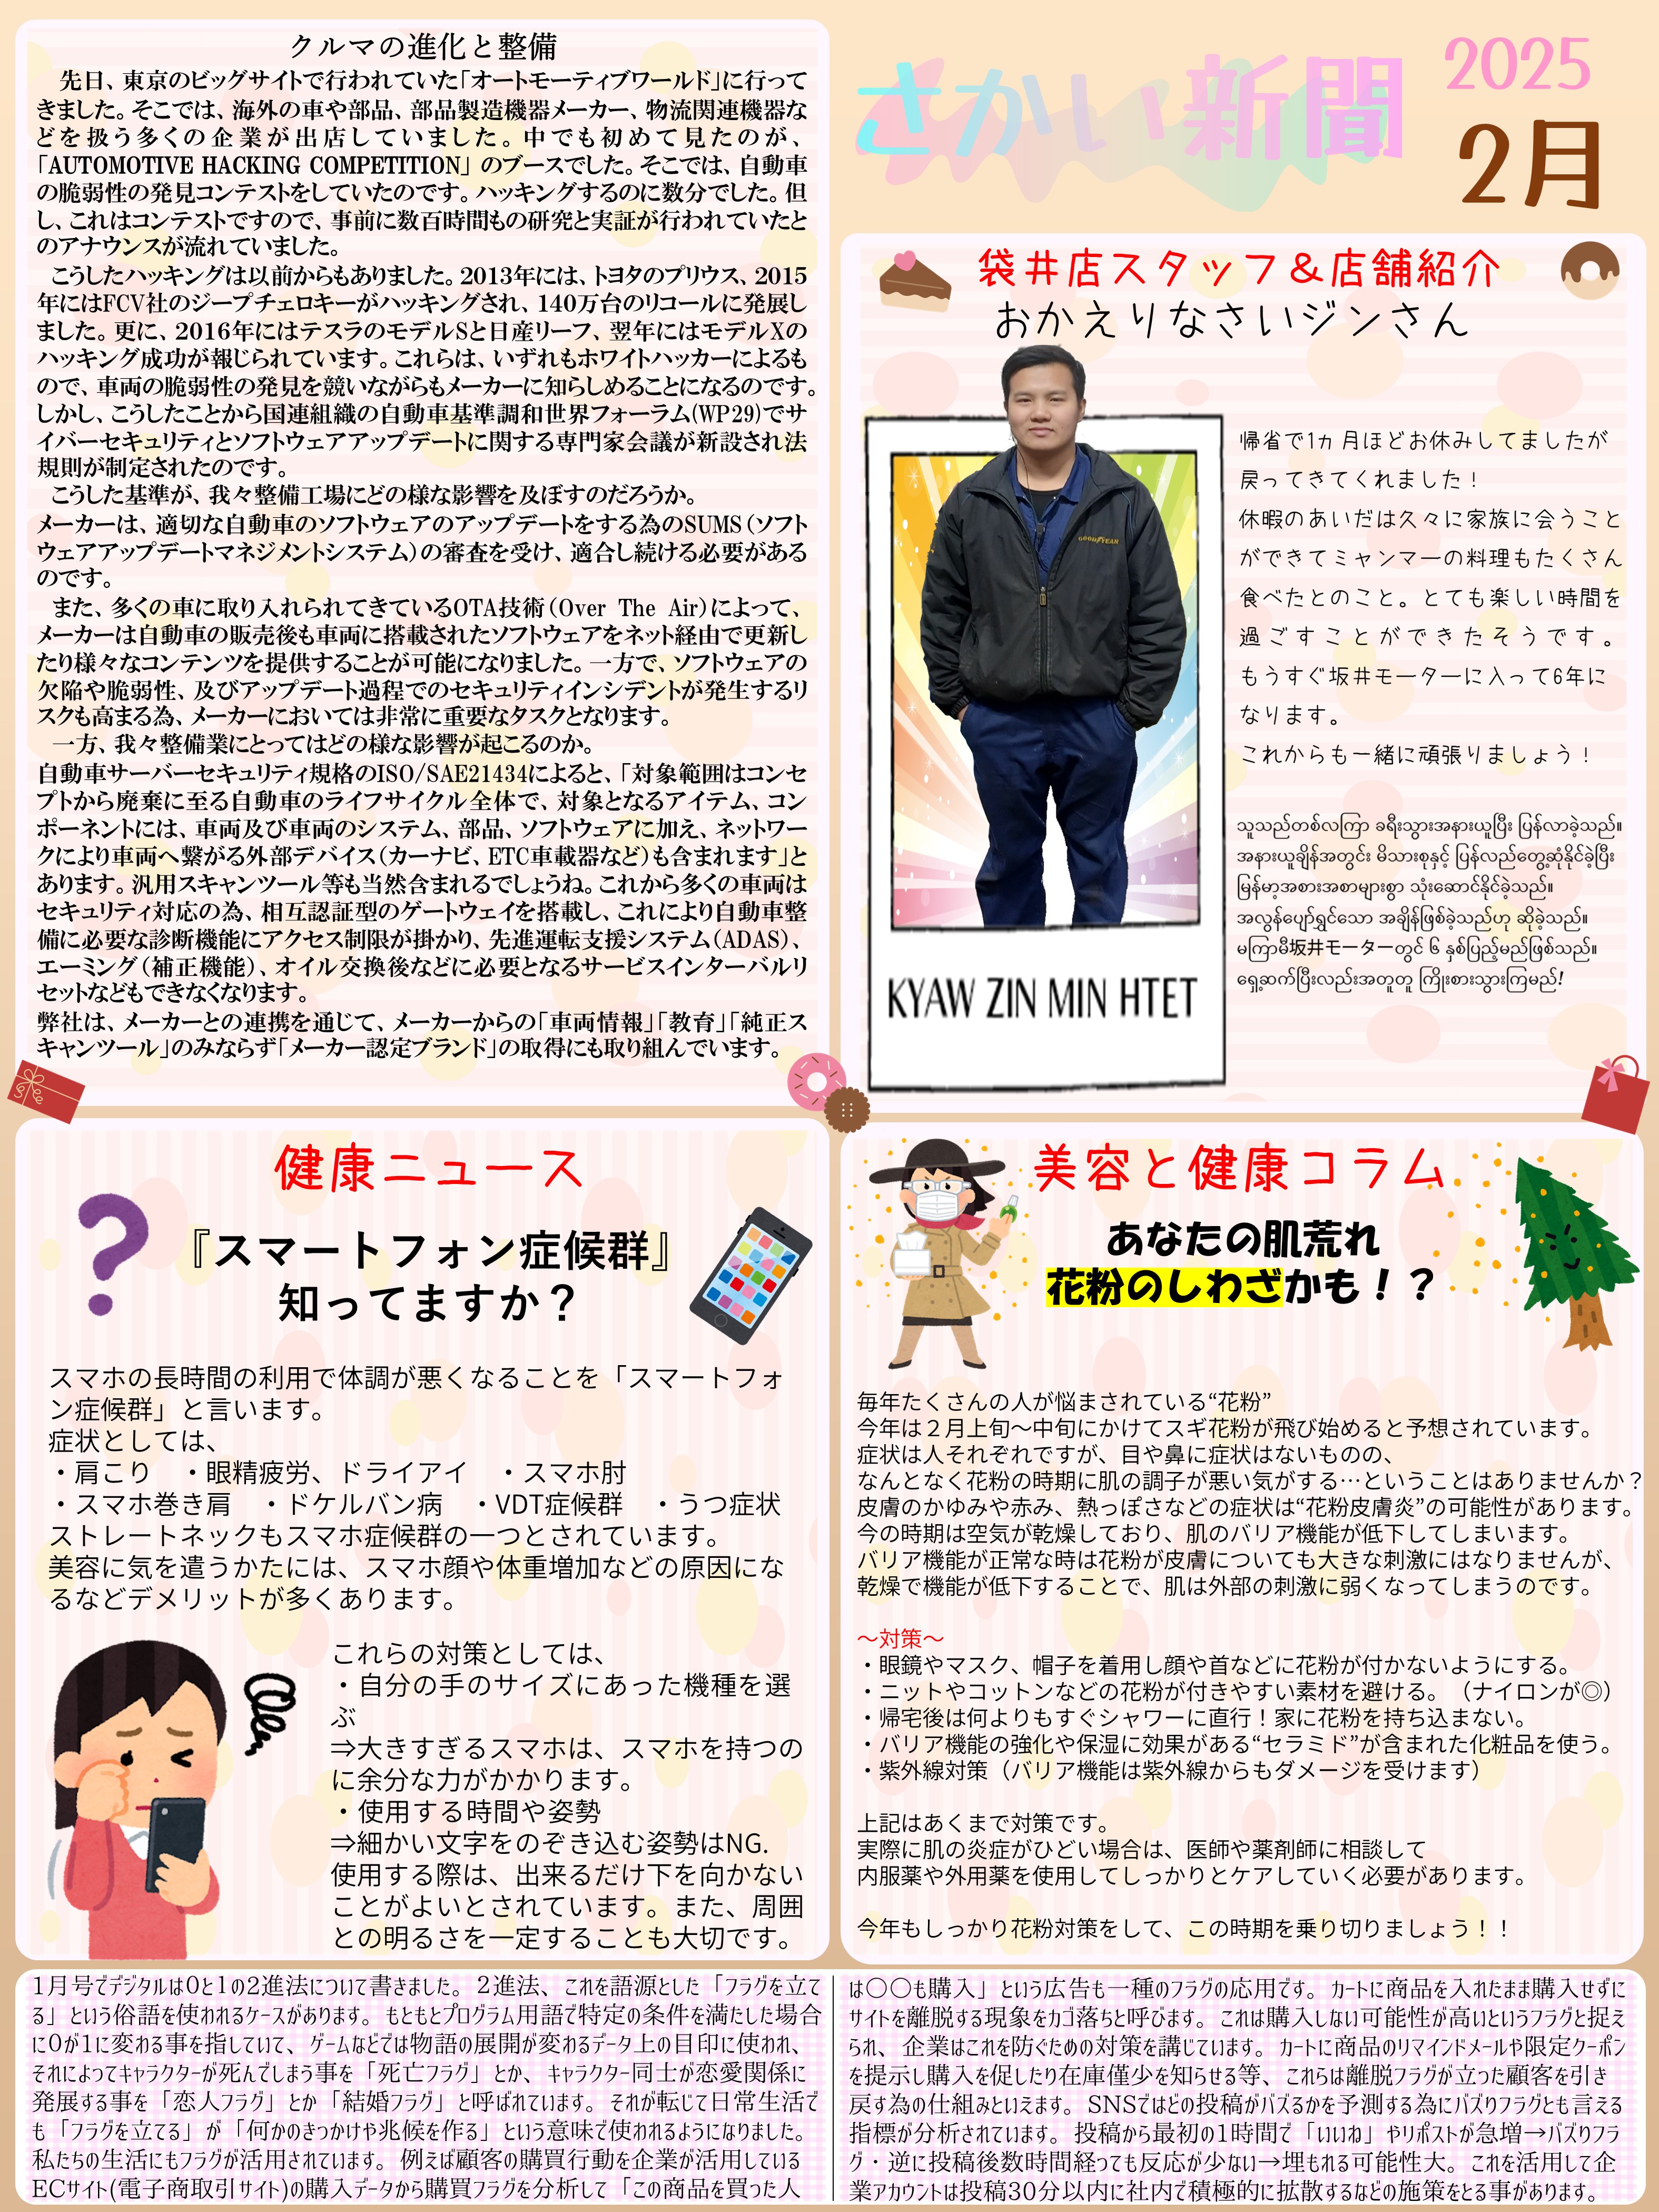 クルマの進化と整備
先日、東京のビッグサイトで行われていた「オートモーティブワールド」に行って
きました。そこでは、海外の車や部品、部品製造機器メーカー、物流関連機器な
どを扱う多くの企業が出店していました。中でも初めて見たのが、
「AUTOMOTIVE HACKING COMPETITION」のブースでした。そこでは、自動車
の脆弱性の発見コンテストをしていたのです。ハッキングするのに数分でした。但
し、これはコンテストですので、事前に数百時間もの研究と実証が行われていたと
のアナウンスが流れていました。
こうしたハッキングは以前からもありました。2013年には、トヨタのプリウス、2015
年にはFCV社のジープチェロキーがハッキングされ、140万台のリコールに発展し
ました。更に、2016年にはテスラのモデルSと日産リーフ、翌年にはモデルXの
ハッキング成功が報じられています。これらは、いずれもホワイトハッカーによるも
ので、車両の脆弱性の発見を競いながらもメーカーに知らしめることになるのです。
しかし、こうしたことから国連組織の自動車基準調和世界フォーラム(WP29)でサ
イバーセキュリティとソフトウェアアップデートに関する専門家会議が新設され法
規則が制定されたのです。
こうした基準が、我々整備工場にどの様な影響を及ぼすのだろうか。
メーカーは、適切な自動車のソフトウェアのアップデートをする為のSUMS(ソフト
ウェアアップデートマネジメントシステム)の審査を受け、適合し続ける必要がある
のです。
また、多くの車に取り入れられてきているOTA技術(Over The Air)によって、
メーカーは自動車の販売後も車両に搭載されたソフトウェアをネット経由で更新し
たり様々なコンテンツを提供することが可能になりました。一方で、ソフトウェアの
欠陥や脆弱性、及びアップデート過程でのセキュリティインシデントが発生するリ
スクも高まる為、メーカーにおいては非常に重要なタスクとなります。
一方、我々整備業にとってはどの様な影響が起こるのか。
自動車サーバーセキュリティ規格のISO/SAE21434によると、「対象範囲はコンセ
プトから廃棄に至る自動車のライフサイクル全体で、対象となるアイテム、コン
ポーネントには、車両及び車両のシステム、部品、ソフトウェアに加え、ネットワー
クにより車両へ繋がる外部デバイス(カーナビ、ETC車載器など)も含まれます」と
あります。汎用スキャンツール等も当然含まれるでしょうね。これから多くの車両は
セキュリティ対応の為、相互認証型のゲートウェイを搭載し、これにより自動車整
備に必要な診断機能にアクセス制限が掛かり、先進運転支援システム(ADAS)、
エーミング(補正機能)、オイル交換後などに必要となるサービスインターバルリ
セットなどもできなくなります。
弊社は、メーカーとの連携を通じて、メーカーからの「車両情報」「教育」「純正ス
キャンツール」のみならず「メーカー認定ブランド」の取得にも取り組んでいます。
さかい新聞
2025
2月
袋井店スタッフ＆店舗紹介
おかえりなさいジンさん
GOODYEAR
KYAW ZIN MIN HTET
帰省で1ヵ月ほどお休みしてましたが
戻ってきてくれました！
休暇のあいだは久々に家族に会うこと
ができてミャンマーの料理もたくさん
食べたとのこと。とても楽しい時間を
過ごすことができたそうです。
もうすぐ坂井モーターに入って6年に
なります。
これからも一緒に頑張りましょう！
သူသည်တစ်လကြာ ခရီးသွားအနားယူပြီး ပြန်လာခဲ့သည်။
အနားယူချိန်အတွင်း မိသားစုနှင့် ပြန်လည်တွေ့ဆုံနိုင်ခဲ့ပြီး
မြန်မာ့အစားအစာများစွာ သုံးဆောင်နိုင်ခဲ့သည်။
အလွန်ပျော်ရွှင်သော အချိန်ဖြစ်ခဲ့သည်ဟု ဆိုခဲ့သည်။
မကြာမီ坂井モーターတွင် ၆ နှစ်ပြည့်မည်ဖြစ်သည်။
ရှေ့ဆက်ပြီးလည်းအတူတူ ကြိုးစားသွားကြမည်!
健康ニュース
『スマートフォン症候群』
知ってますか？
スマホの長時間の利用で体調が悪くなることを「スマートフォ
ン症候群」と言います。
症状としては、
・肩こり　・眼精疲労、ドライアイ　・スマホ肘
・スマホ巻き肩　・ドケルバン病　・VDT症候群　・うつ症状
ストレートネックもスマホ症候群の一つとされています。
美容に気を遣うかたには、スマホ顔や体重増加などの原因にな
るなどデメリットが多くあります。
これらの対策としては、
・自分の手のサイズにあった機種を選
ぶ
⇒大きすぎるスマホは、スマホを持つの
に余分な力がかかります。
・使用する時間や姿勢
⇒細かい文字をのぞき込む姿勢はNG.
使用する際は、出来るだけ下を向かない
ことがよいとされています。また、周囲
との明るさを一定することも大切です。
美容と健康コラム
あなたの肌荒れ
花粉のしわざかも！？
毎年たくさんの人が悩まされている“花粉”
今年は２月上旬～中旬にかけてスギ花粉が飛び始めると予想されています。
症状は人それぞれですが、目や鼻に症状はないものの、
なんとなく花粉の時期に肌の調子が悪い気がする…ということはありませんか？
皮膚のかゆみや赤み、熱っぽさなどの症状は“花粉皮膚炎”の可能性があります。
今の時期は空気が乾燥しており、肌のバリア機能が低下してしまいます。
バリア機能が正常な時は花粉が皮膚についても大きな刺激にはなりませんが、
乾燥で機能が低下することで、肌は外部の刺激に弱くなってしまうのです。
～対策～
・眼鏡やマスク、帽子を着用し顔や首などに花粉が付かないようにする。
・ニットやコットンなどの花粉が付きやすい素材を避ける。（ナイロンが◎）
・帰宅後は何よりもすぐシャワーに直行！家に花粉を持ち込まない。
・バリア機能の強化や保湿に効果がある“セラミド”が含まれた化粧品を使う。
・紫外線対策（バリア機能は紫外線からもダメージを受けます）
上記はあくまで対策です。
実際に肌の炎症がひどい場合は、医師や薬剤師に相談して
内服薬や外用薬を使用してしっかりとケアしていく必要があります。
今年もしっかり花粉対策をして、この時期を乗り切りましょう！！
1月号でデジタルは0と1の2進法について書きました。2進法、これを語源とした「フラグを立て
る」という俗語を使われるケースがあります。もともとプログラム用語で特定の条件を満たした場合
に0が1に変わる事を指していて、ゲームなどでは物語の展開が変わるデータ上の目印に使われ、
それによってキャラクターが死んでしまう事を「死亡フラグ」とか、キャラクター同士が恋愛関係に
発展する事を「恋人フラグ」とか「結婚フラグ」と呼ばれています。それが転じて日常生活で
も「フラグを立てる」が「何かのきっかけや兆候を作る」という意味で使われるようになりました。
私たちの生活にもフラグが活用されています。例えば顧客の購買行動を企業が活用している
ECサイト(電子商取引サイト)の購入データから購買フラグを分析して「この商品を買った人
は〇〇も購入」という広告も一種のフラグの応用です。カートに商品を入れたまま購入せずに
サイトを離脱する現象をカゴ落ちと呼びます。これは購入しない可能性が高いというフラグと捉え
られ、企業はこれを防ぐための対策を講じています。カートに商品のリマインドメールや限定クーポン
を提示し購入を促したり在庫僅少を知らせる等、これらは離脱フラグが立った顧客を引き
戻す為の仕組みといえます。SNSではどの投稿がバズるかを予測する為にバズりフラグとも言える
指標が分析されています。投稿から最初の1時間で「いいね」やリポストが急増→バズりフラ
グ・逆に投稿後数時間経っても反応が少ない→埋もれる可能性大。これを活用して企
業アカウントは投稿30分以内に社内で積極的に拡散するなどの施策をとる事があります。